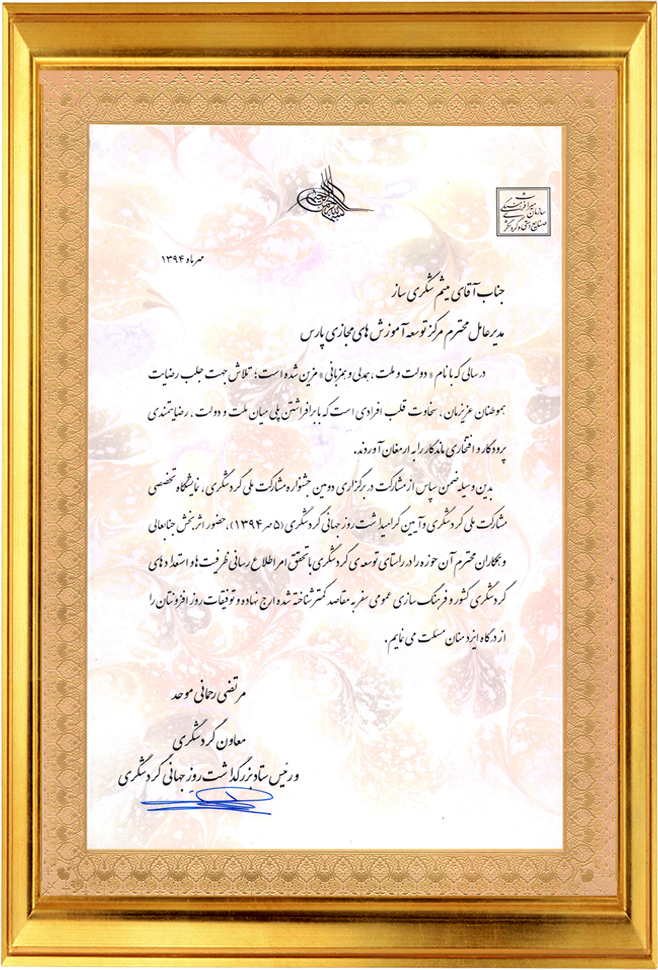 سازمان میراث فرهنگی
صنایع دستی و گردشگری
مهرماه ۱۳۹۴
جناب آقای میثم شکری ساز
مدیرعامل محترم مرکز توسعه آموزش های مجازی پارس
در سالی که با نام « دولت و ملت ، همدلی و همزبانی » مزین شده است؛ تلاش جهت جلب رضایت
هموطنان عزیزمان ، سخاوت قلب افرادی است که با برافراشتن پلی میان ملت و دولت ، رضایتمندی
پرودگار و افتخاری ماندگار را به ارمغان آوردند.
بدین وسیله ضمن سپاس از مشارکت در برگزاری دومین جشنواره مشارکت ملی گردشگری ، نمایشگاه تخصصی
مشارکت ملی گردشگری و آیین گرامیداشت روز جهانی گردشگری (۵ مهر ۱۳۹۴)، حضور اثربخش جنابعالی
و همکاران محترم آن حوزه را در راستای توسعه ی گردشگری با تحقق امر اطلاع رسانی ظرفیت ها و استعدادهای
گردشگری کشور و فرهنگ سازی عمومی سفر به مقاصد کمتر شناخته شده ارج نهاده و توفیقات روز افزونتان را
از درگاه ایزد منان مسئلت می نمایم .
مرتضی رحمانی موحد
معاون گردشگری
و رئیس ستاد بزرگداشت روز جهانی گردشگری